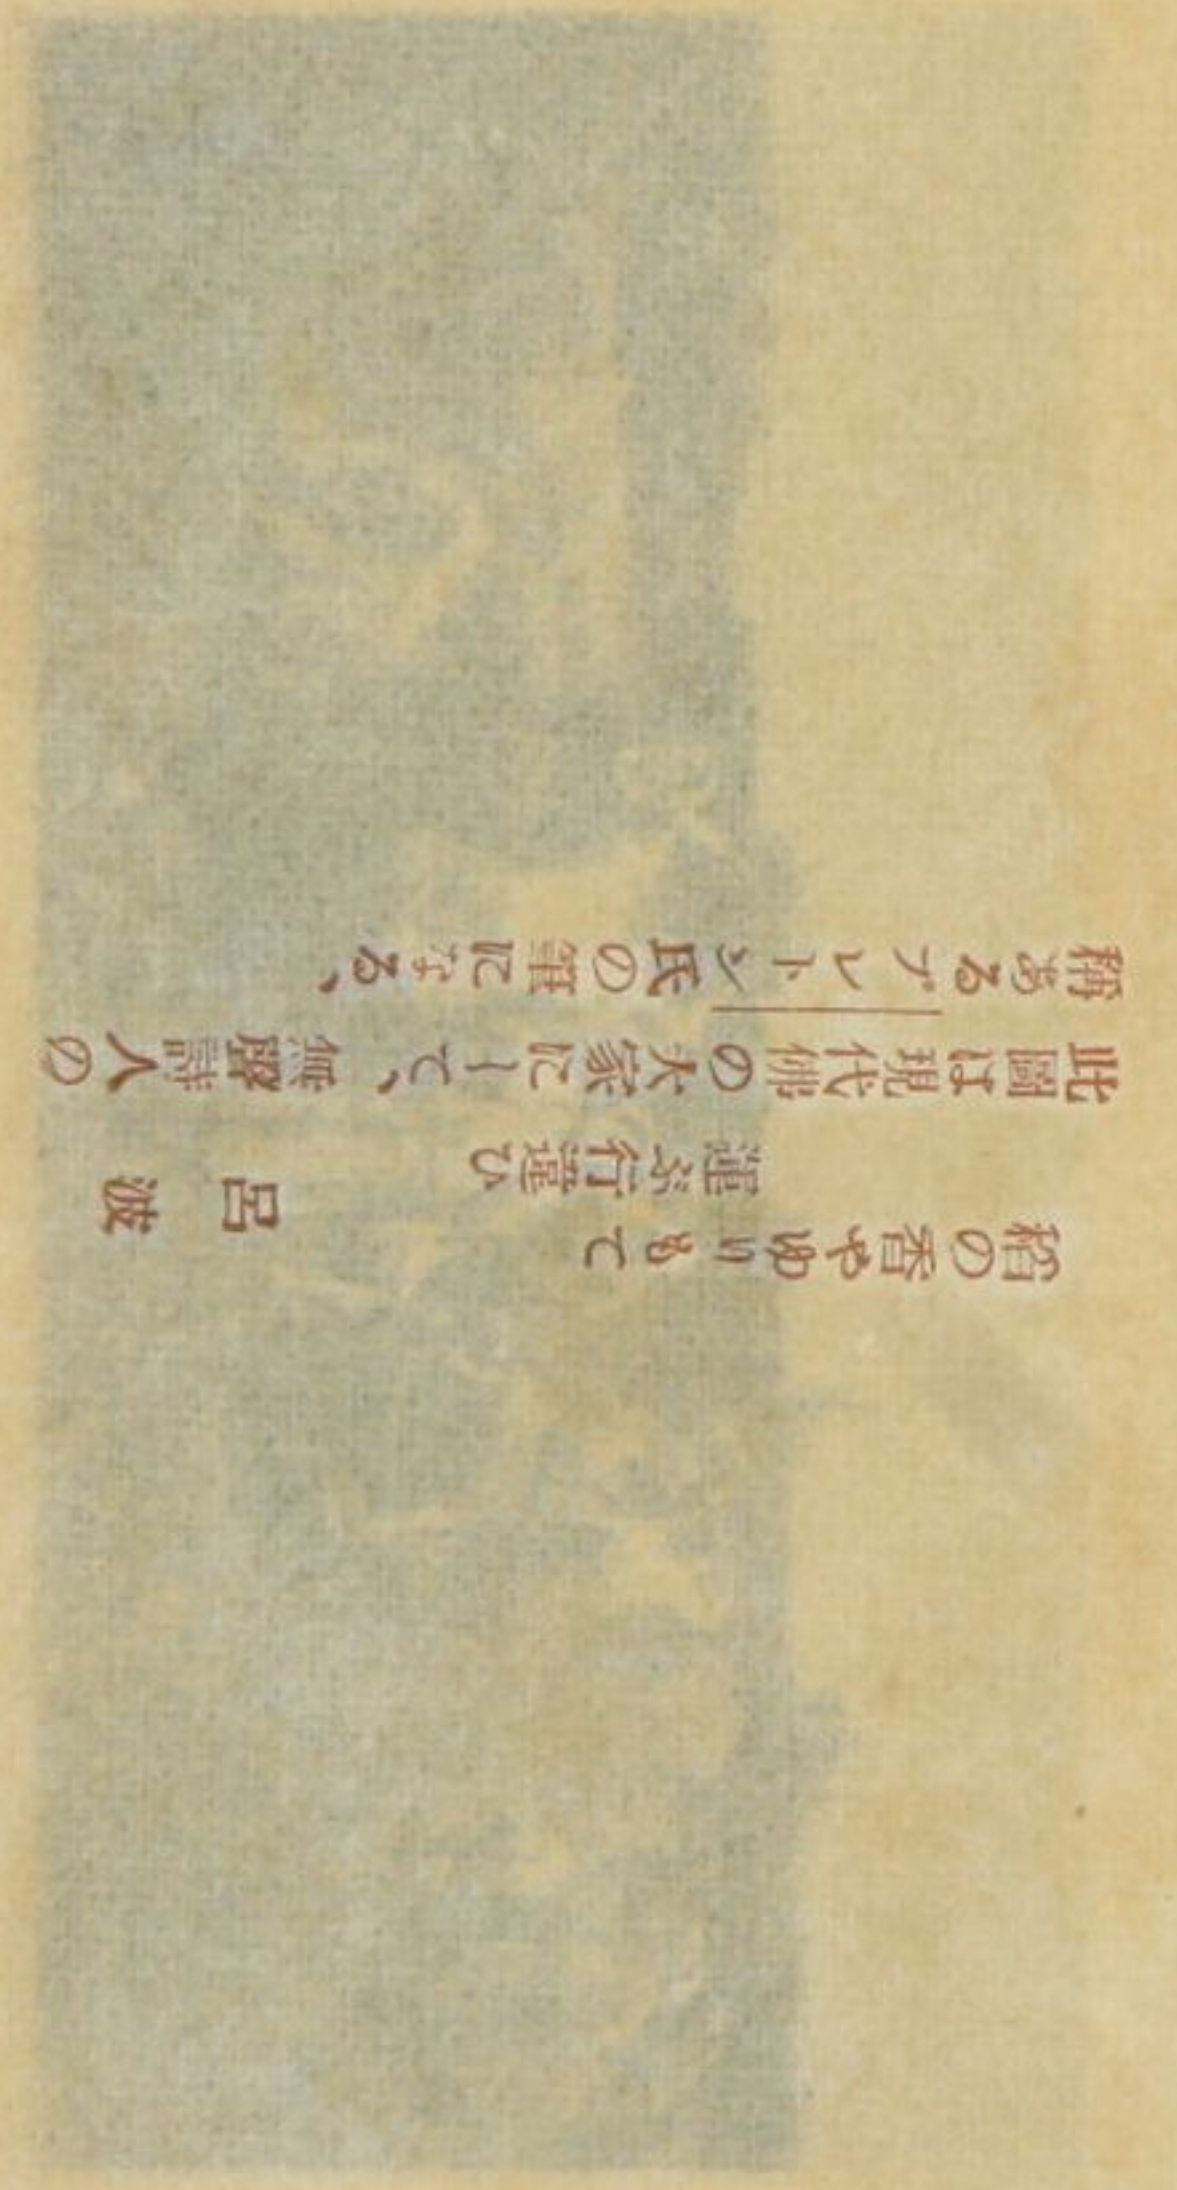 稻の香やゆりもて
運ぶ行違ひ
呂波
此圖は現代佛の大家にして、無聲詩人の
稱あるブレトン氏の筆になる、